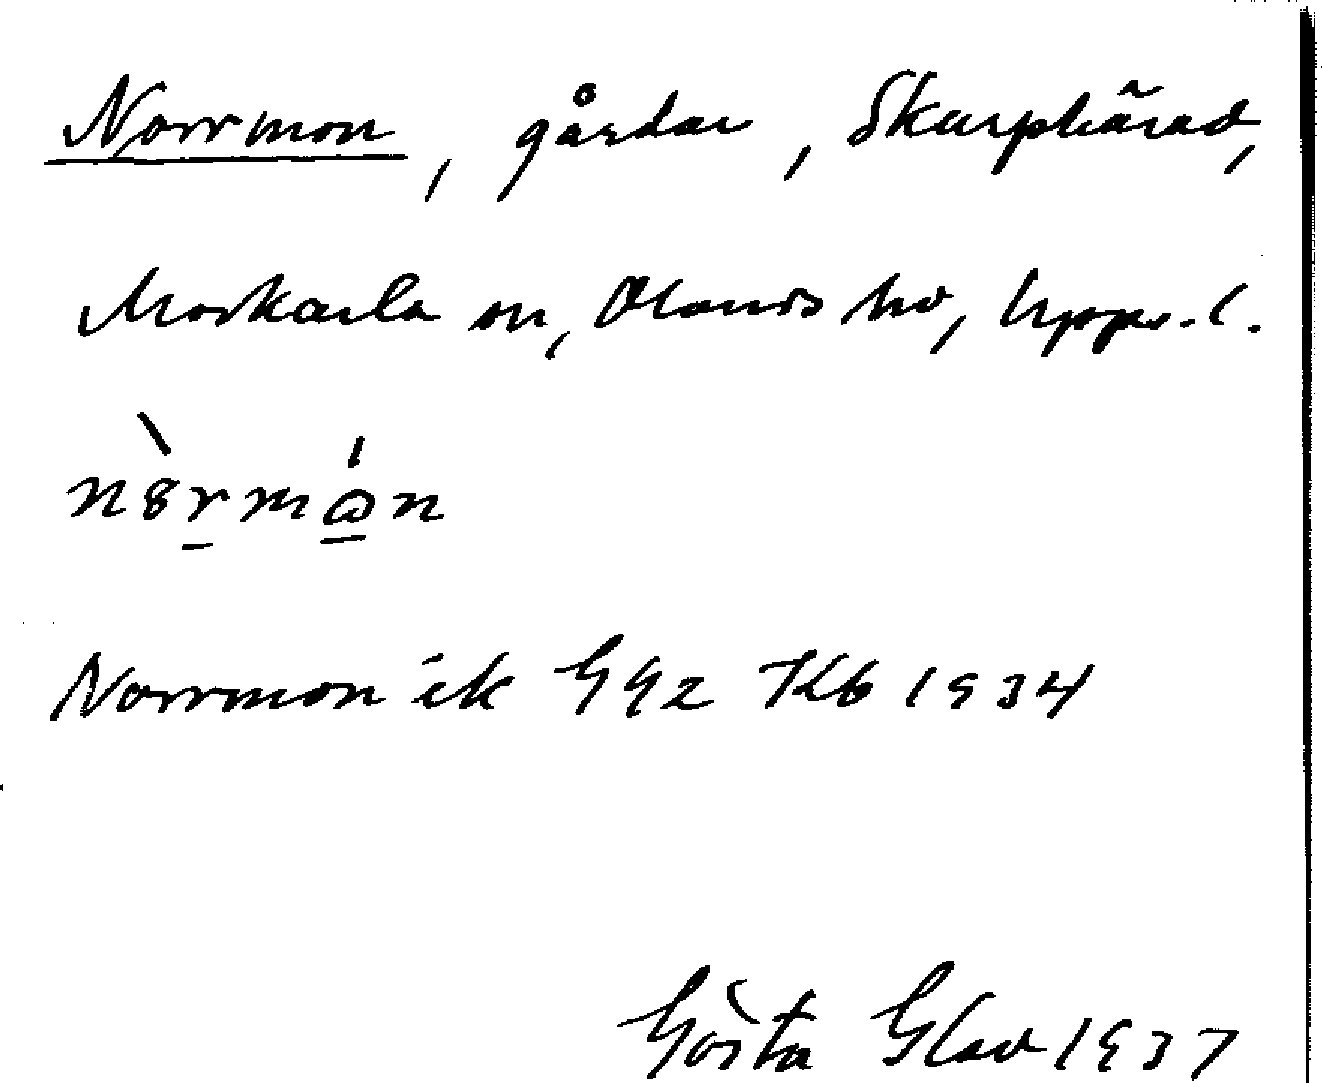 Norrmon, gårdar, Skarphärad,
Morkarla sn, Olands hd, Upps. l.
nòrmón
Norrmon ek GG2 Kb 1934
Gösta Glad 1937